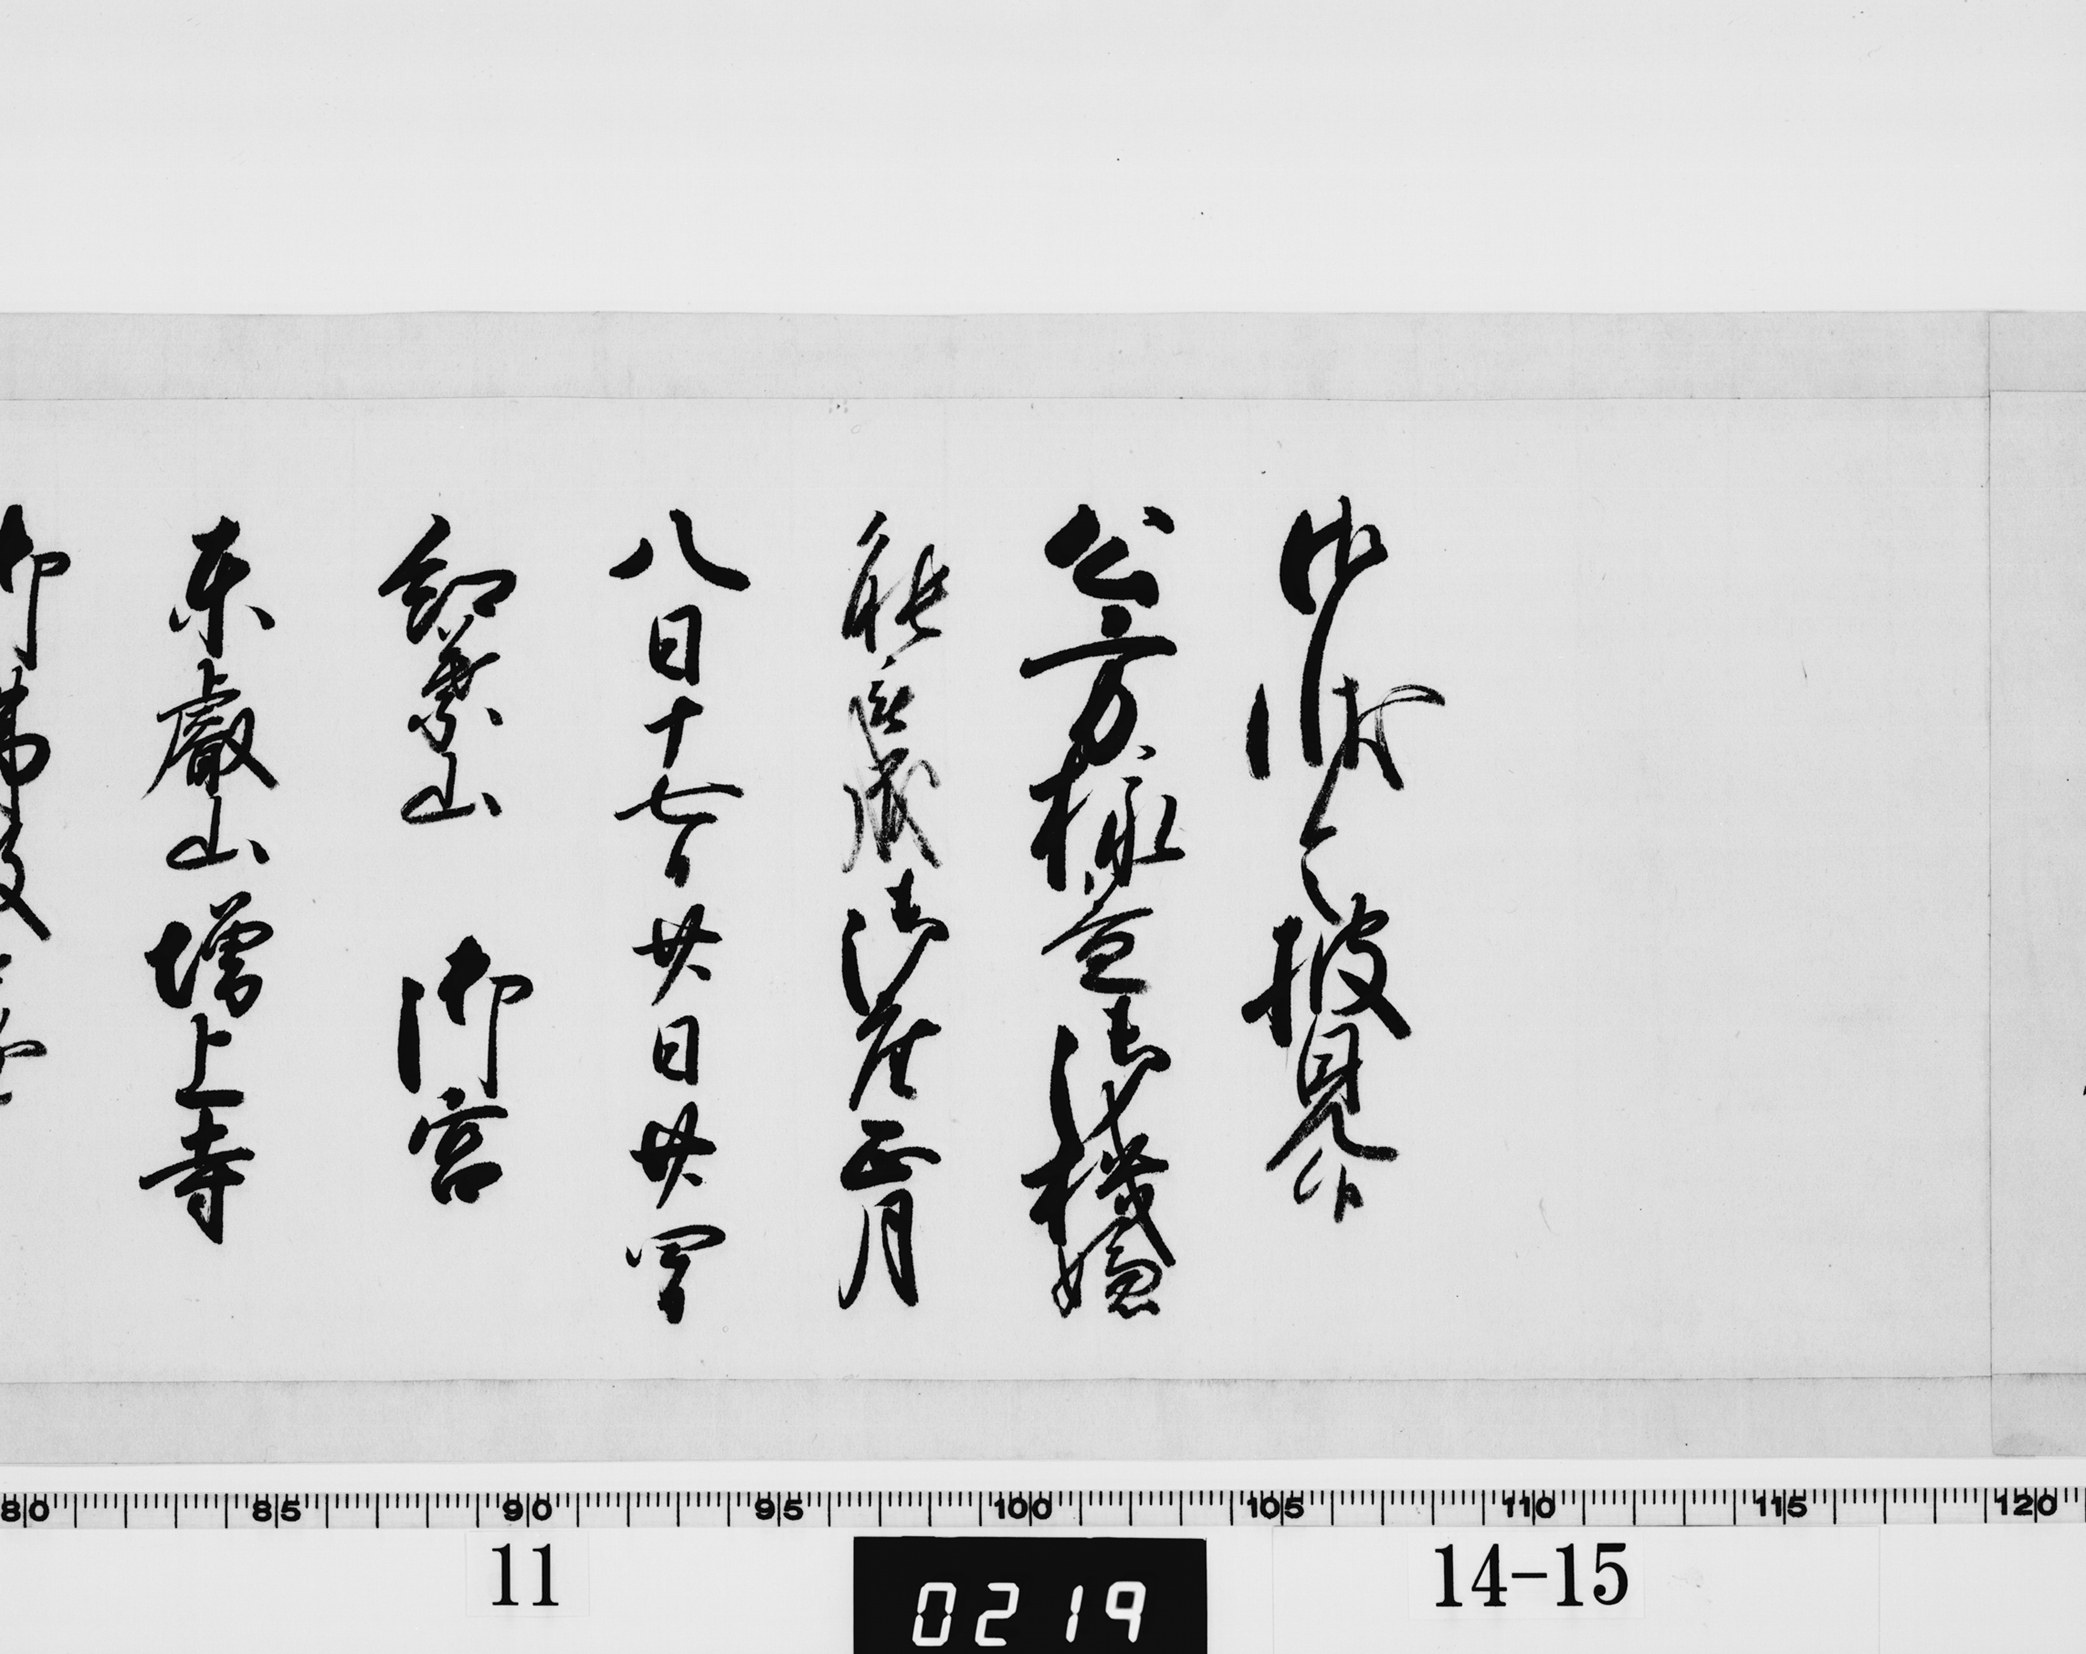 御状之披見候
公方様益御機嫌
能被成御座正月
八日十七日廿日廿四日
紅葉山　御宮
東叡山増上寺
80 85 90 95 100 105 110 115 120
11
0219
14-15